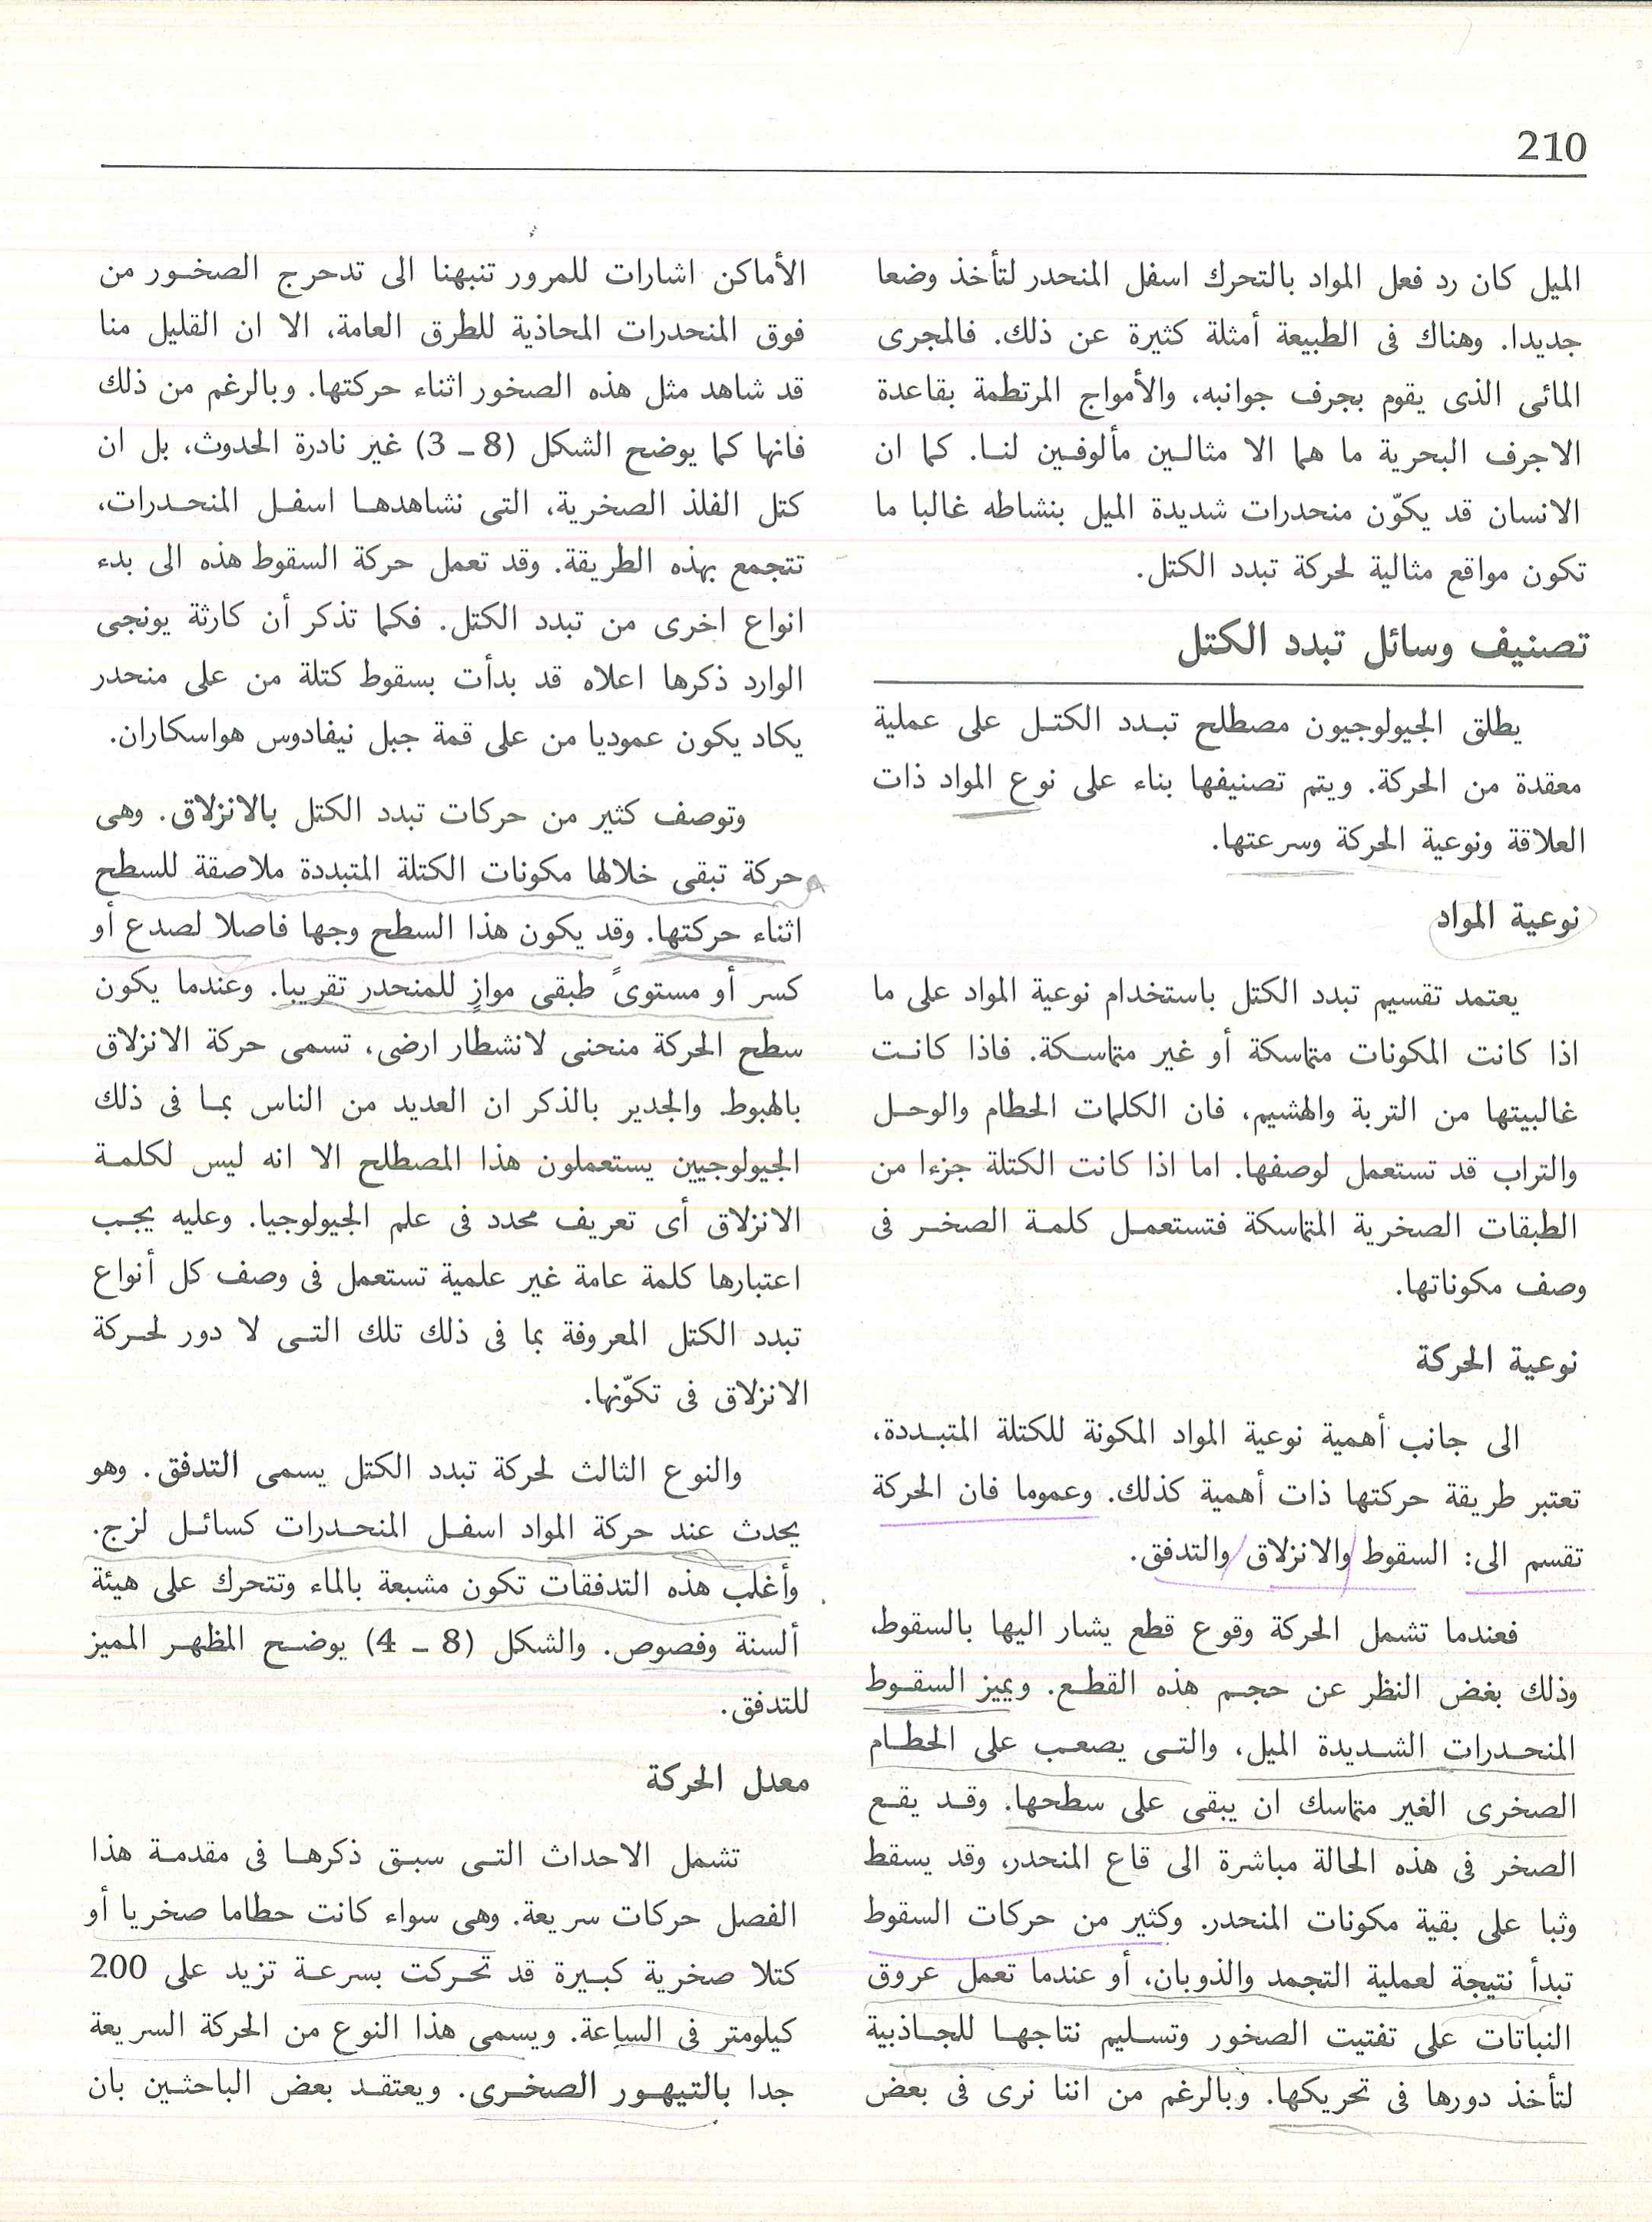 210
الميل كان رد فعل المواد بالتحرك اسفل المنحدر لتأخذ وضعا
جديدا. وهناك فى الطبيعة أمثلة كثيرة عن ذلك. فالمجرى
المائى الذى يقوم بجرف جوانبه، والأمواج المرتطمة بقاعدة
الاجرف البحرية ما هما الا مثالين مألوفين لنا. كما ان
الانسان قد يكوّن منحدرات شديدة الميل بنشاطه غالبا ما
تكون مواقع مثالية لحركة تبدد الكتل.
تصنيف وسائل تبدد الكتل
يطلق الجيولوجيون مصطلح تبدد الكتل على عملية
معقدة من الحركة. ويتم تصنيفها بناء على نوع المواد ذات
العلاقة ونوعية الحركة وسرعتها.
نوعية المواد
يعتمد تقسيم تبدد الكتل باستخدام نوعية المواد على ما
اذا كانت المكونات متماسكة أو غير متماسكة. فاذا كانت
غالبيتها من التربة والهشيم، فان الكلمات الحطام والوحل
والتراب قد تستعمل لوصفها. اما اذا كانت الكتلة جزءا من
الطبقات الصخرية المتماسكة فتستعمل كلمة الصخر فى
وصف مكوناتها.
نوعية الحركة
الى جانب أهمية نوعية المواد المكونة للكتلة المتبددة،
تعتبر طريقة حركتها ذات أهمية كذلك. وعموما فان الحركة
تقسم الى: السقوط والانزلاق والتدفق.
فعندما تشمل الحركة وقوع قطع يشار اليها بالسقوط،
وذلك بغض النظر عن حجم هذه القطع. ويميز السقوط
المنحدرات الشديدة الميل، والتى يصعب على الحطام
الصخرى الغير متماسك ان يبقى على سطحها. وقد يقع
الصخر فى هذه الحالة مباشرة الى قاع المنحدر، وقد يسقط
وثبا على بقية مكونات المنحدر. وكثير من حركات السقوط
تبدأ نتيجة لعملية التجمد والذوبان، أو عندما تعمل عروق
النباتات على تفتيت الصخور وتسليم نتاجها للجاذبية
لتأخذ دورها فى تحريكها. وبالرغم من اننا نرى فى بعض
الأماكن اشارات للمرور تنبهنا الى تدحرج الصخور من
فوق المنحدرات المحاذية للطرق العامة، الا ان القليل منا
قد شاهد مثل هذه الصخور اثناء حركتها. وبالرغم من ذلك
فانها كما يوضح الشكل (8 ـ 3) غير نادرة الحدوث، بل ان
كتل الفلذ الصخرية، التى نشاهدها اسفل المنحدرات،
تتجمع بهذه الطريقة. وقد تعمل حركة السقوط هذه الى بدء
انواع اخرى من تبدد الكتل. فكما تذكر أن كارثة يونجى
الوارد ذكرها اعلاه قد بدأت بسقوط كتلة من على منحدر
يكاد يكون عموديا من على قمة جبل نيفادوس هواسكاران.
وتوصف كثير من حركات تبدد الكتل بالانزلاق. وهى
حركة تبقى خلالها مكونات الكتلة المتبددة ملاصقة للسطح
اثناء حركتها. وقد يكون هذا السطح وجها فاصلا لصدع أو
كسر أو مستوىً طبقى موازٍ للمنحدر تقريبا. وعندما يكون
سطح الحركة منحنى لانشطار ارضى، تسمى حركة الانزلاق
بالهبوط. والجدير بالذكر ان العديد من الناس بما فى ذلك
الجيولوجيين يستعملون هذا المصطلح الا انه ليس لكلمة
الانزلاق أى تعريف محدد فى علم الجيولوجيا. وعليه يجب
اعتبارها كلمة عامة غير علمية تستعمل فى وصف كل أنواع
تبدد الكتل المعروفة بما فى ذلك تلك التى لا دور لحركة
الانزلاق فى تكوّنها.
والنوع الثالث لحركة تبدد الكتل يسمى التدفق. وهو
يحدث عند حركة المواد اسفل المنحدرات كسائل لزج.
وأغلب هذه التدفقات تكون مشبعة بالماء وتتحرك على هيئة
ألسنة وفصوص. والشكل (8 ـ 4) يوضح المظهر المميز
للتدفق.
معدل الحركة
تشمل الاحداث التى سبق ذكرها فى مقدمة هذا
الفصل حركات سريعة. وهى سواء كانت حطاما صخريا أو
كتلا صخرية كبيرة قد تحركت بسرعة تزيد على 200
كيلومتر فى الساعة. ويسمى هذا النوع من الحركة السريعة
جدا بالتيهور الصخرى. ويعتقد بعض الباحثين بان